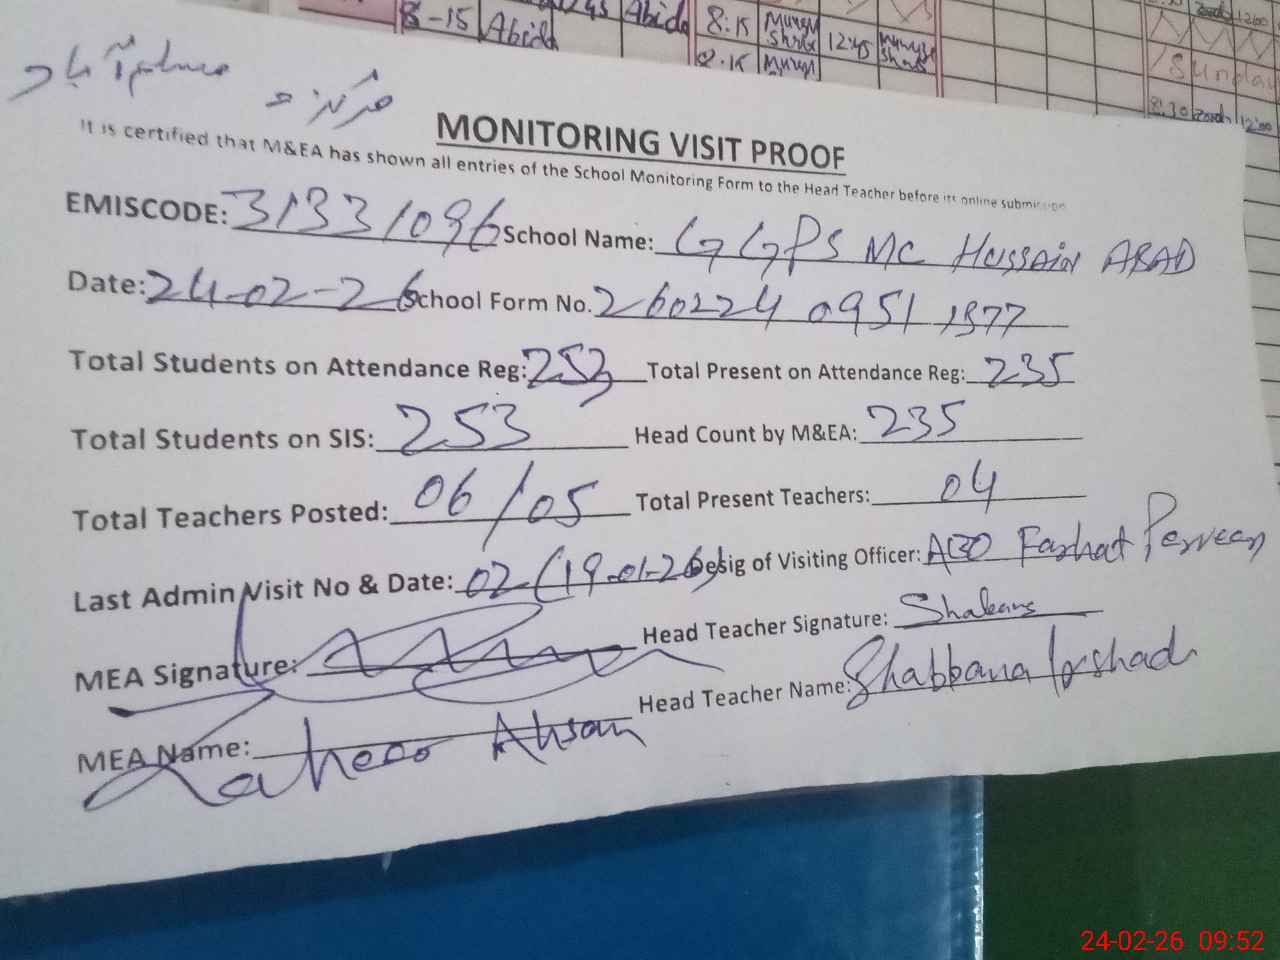 8-15 Abida Abida 8:15 12:45 12:00
Sunday
8:15 8:30 12:00
مرکز
MONITORING VISIT PROOF
It is certified that M&EA has shown all entries of the School Monitoring Form to the Head Teacher before its online submission
EMISCODE: 31331096 School Name: GGPS MC HUSSAIN ABAD
Date: 24-02-26 School Form No. 260224 0951 1377
Total Students on Attendance Reg: 253 Total Present on Attendance Reg: 235
Total Students on SIS: 253 Head Count by M&EA: 235
Total Teachers Posted: 06/05 Total Present Teachers: 04
Last Admin Visit No & Date: 02 (19-01-26) Desig of Visiting Officer: AEO Farhat Perveen
MEA Signature: Head Teacher Signature:
MEA Name: Ahsan Head Teacher Name: Shabbana Irshad
24-02-26 09:52